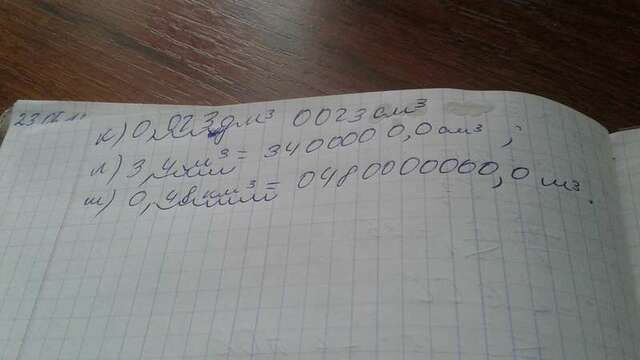 к) 0,023 дм³ 0023 см³
л) 3,4 м³ = 3400000,0 см³;
м) 0,48 км³ = 0480000000,0 м³.